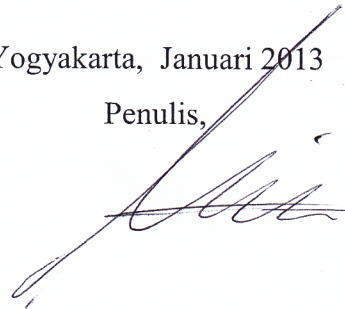 Yogyakarta, Januari 2013
Penulis,